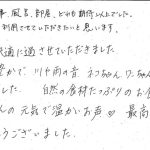 事、風呂、部屋、どれも期待以上でした。
利用させていただきたいと思います。
快適に過させていただきました
静かで 川や雨の音 ネコちゃん、ワンちゃん
した。 自然の食材たっぷりのお食
んの 元気で温かいお声♡ 最高
うございました。